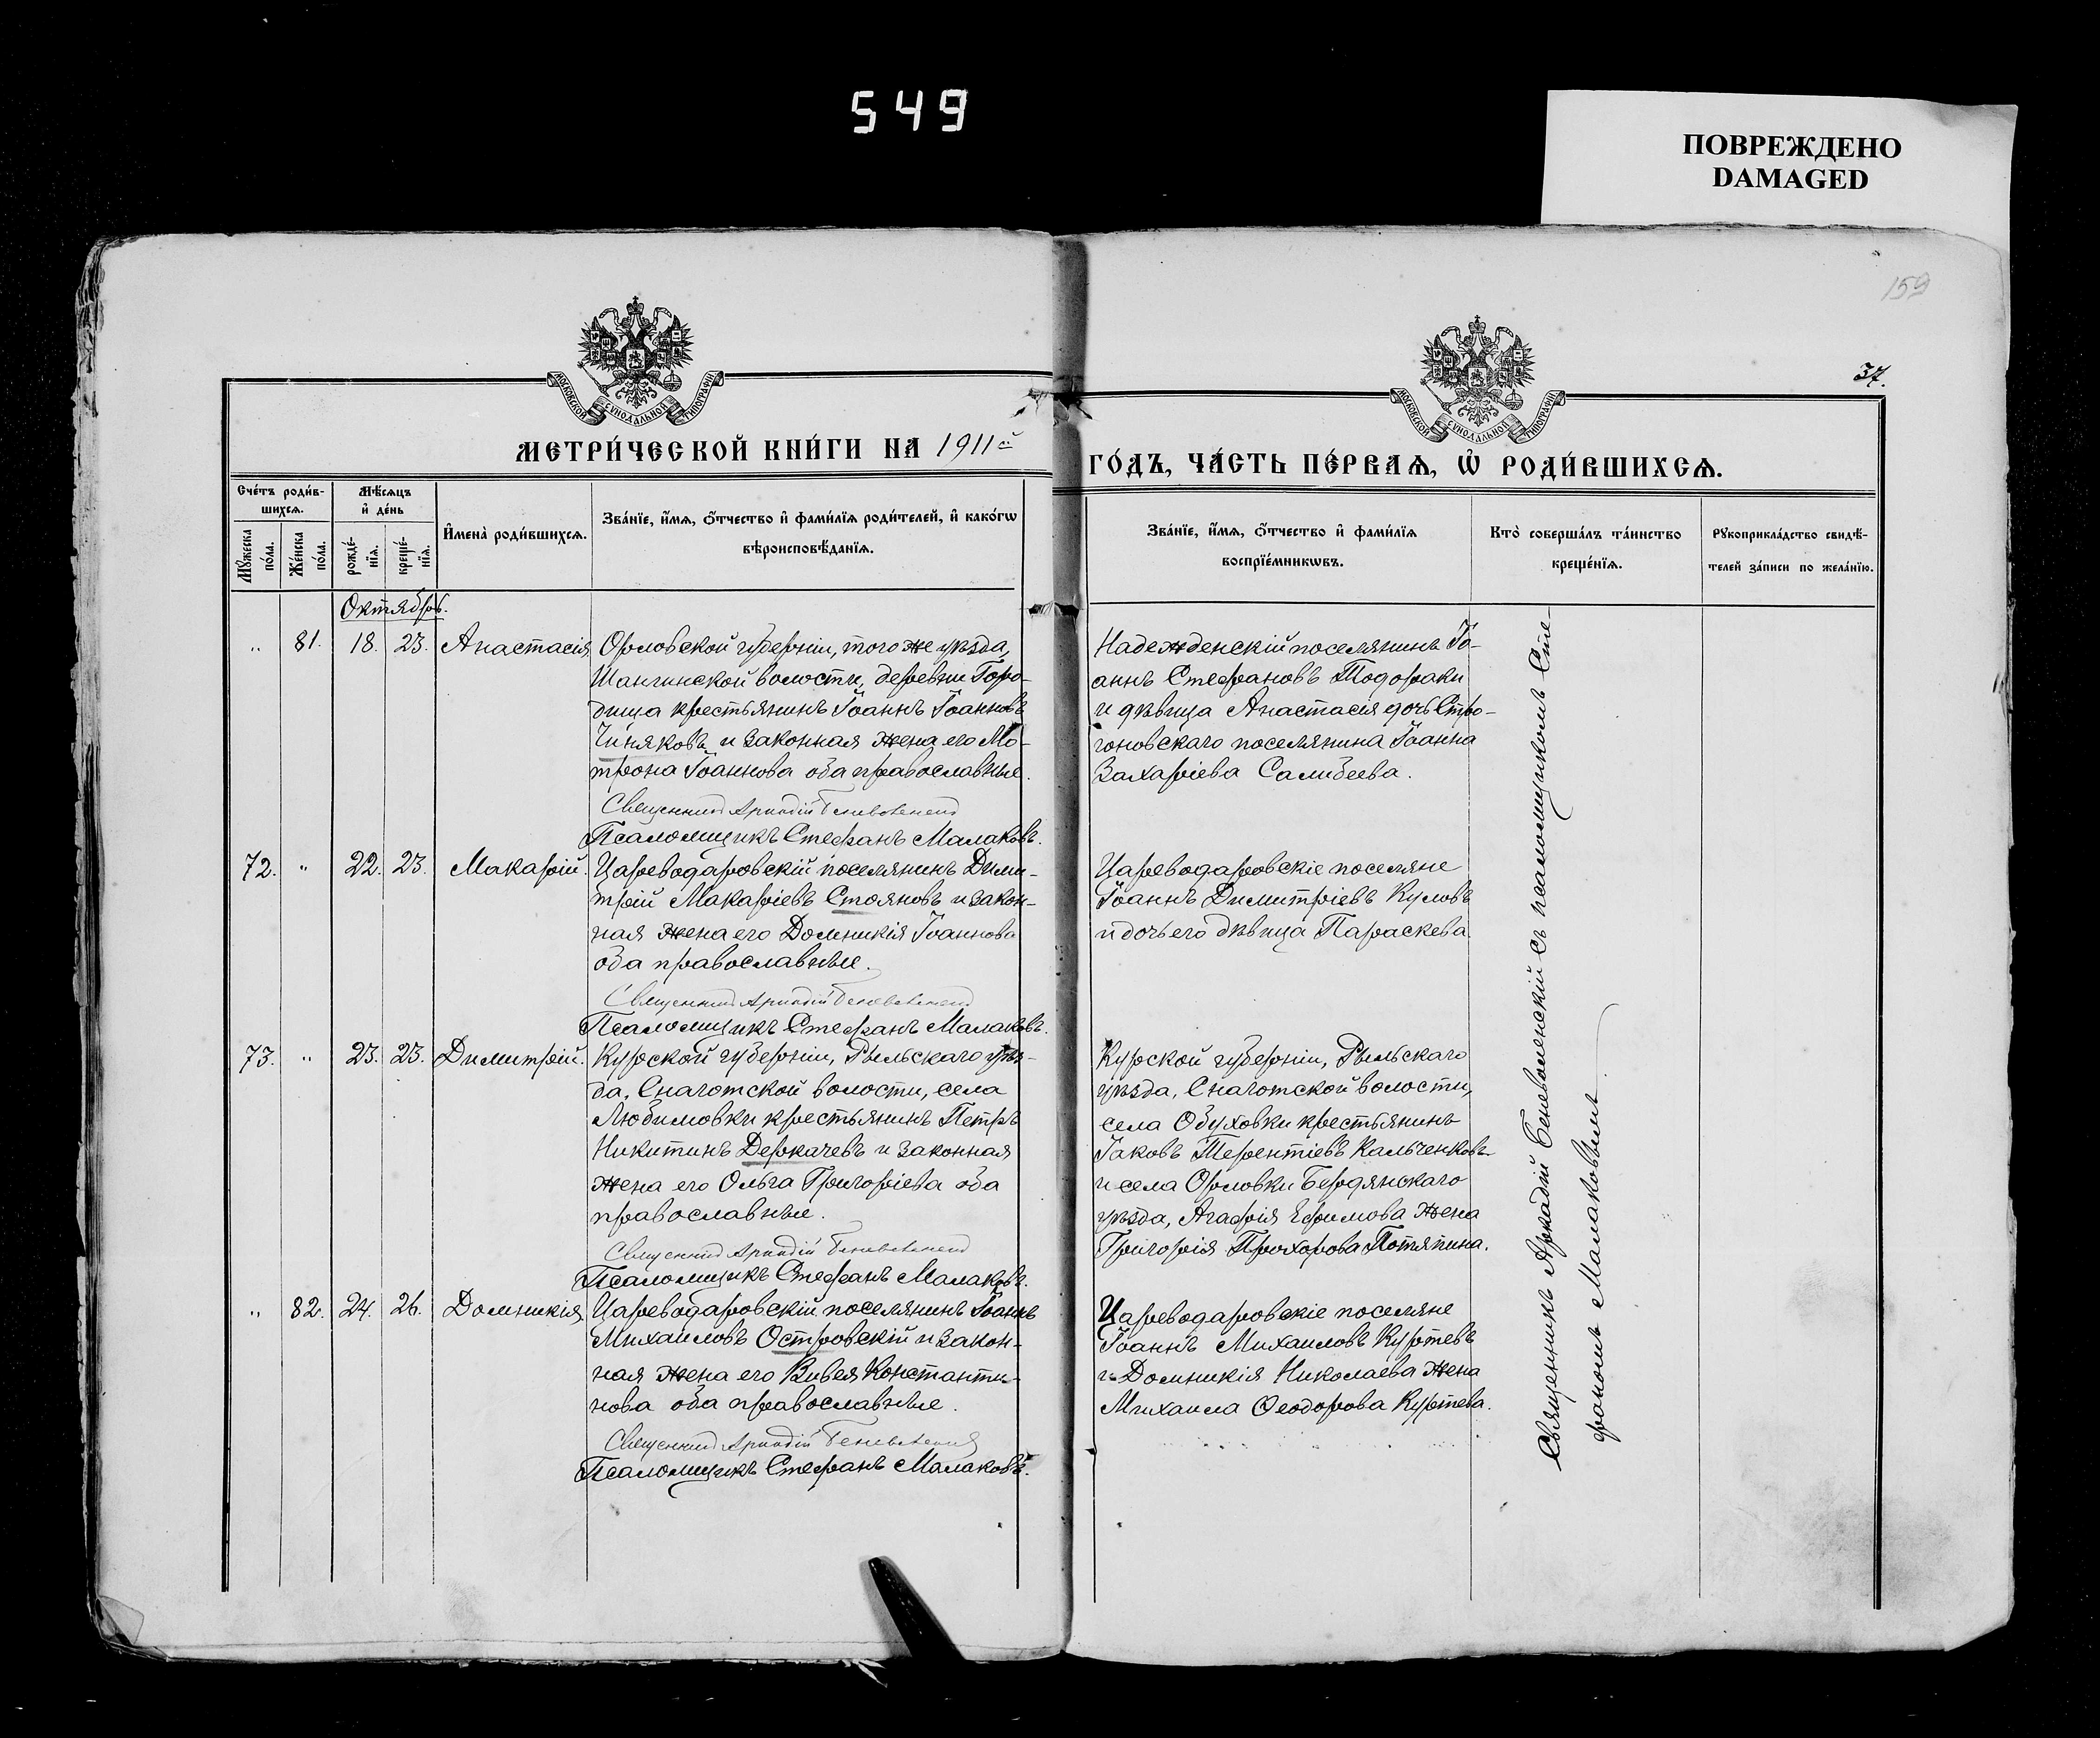 549
ПОВРЕЖДЕНО
DAMAGED
159
37.
МОСКОВСКОЙ СѴНОДАЛЬНОЙ ТИПОГРАФІИ
МОСКОВСКОЙ СѴНОДАЛЬНОЙ ТИПОГРАФІИ
МЕТРИ́ЧЕСКОЙ КНИ́ГИ НА 1911й
ГО́ДЪ, ЧА́СТЬ ПЕ́РВАѦ, Ѡ҆ РОДИ́ВШИХСѦ.
Сче́тъ роди́в-
шихсѧ.
Мѹ́жеска по́ла.
Же́нска по́ла.
Мѣ́сѧцъ
и҆ де́нь
рожде́-
нїѧ.
креще́-
нїѧ.
И҆мена̀ роди́вшихсѧ.
Зва́нїе, и҆́мѧ, ѻ҆́тчество и҆ фами́лїѧ роди́телей, и҆ како́гѡ
вѣроисповѣ́данїѧ.
Зва́нїе, и҆́мѧ, ѻ҆́тчество и҆ фами́лїѧ
воспрїе́мникѡвъ.
Кто̀ соверша́лъ та́инство
креще́нїѧ.
Рѹкоприкла́дство свидѣ́-
телей за́писи по жела́нїю.
Октябрь.
" 81. 18. 23. Анастасія
Орловской губерніи, того же уѣзда,
волости, деревни Горо-
дища крестьянинъ Іоаннъ Іоанновъ
Чиняковъ и законная жена его Мо-
трона Іоаннова оба православные.
Священникъ Аркадій Беневоленскій
Псаломщикъ Стефанъ Малаковъ.
Надежденскій поселянинъ Іо-
аннъ Стефановъ Тодораки
и дѣвица Анастасія дочь Стро-
гоновскаго поселянина Іоанна
Захаріева Салибеева.
72. " 22. 23. Макарій.
Цареводаровскій поселянинъ Дими-
трій Макаріевъ Стояновъ и закон-
ная жена его Домникія Іоаннова
оба православные.
Священникъ Аркадій Беневоленскій
Псаломщикъ Стефанъ Малаковъ.
Цареводаровскіе поселяне
Іоаннъ Димитріевъ Куловъ
и дочь его дѣвица Параскева
73. " 23. 23. Димитрій.
Курской губерніи, Рыльскаго уѣз-
да, Снаготской волости, села
Любимовки крестьянинъ Петръ
Никитинъ Деркачевъ и законная
жена его Ольга Григоріева оба
православные.
Священникъ Аркадій Беневоленскій
Псаломщикъ Стефанъ Малаковъ.
Курской губерніи, Рыльскаго
уѣзда, Снаготской волости,
села Обуховки крестьянинъ
Іаковъ Терентіевъ Кальченковъ
и села Орловки Бердянскаго
уѣзда, Агафія Ефимова жена
Григорія Прохорова Потяпина.
" 82. 24. 26. Домникія
Цареводаровскій поселянинъ Іоаннъ
Михаиловъ Островскій и закон-
ная жена его Вивея Константи-
нова оба православные.
Священникъ Аркадій Беневоленскій
Псаломщикъ Стефанъ Малаковъ.
Цареводаровскіе поселяне
Іоаннъ Михаиловъ Куртевъ
и Домникія Николаева жена
Михаила Ѳеодорова Куртева.
Священникъ Аркадій Беневоленскій съ псаломщикомъ Сте-
фаномъ Малаковымъ.